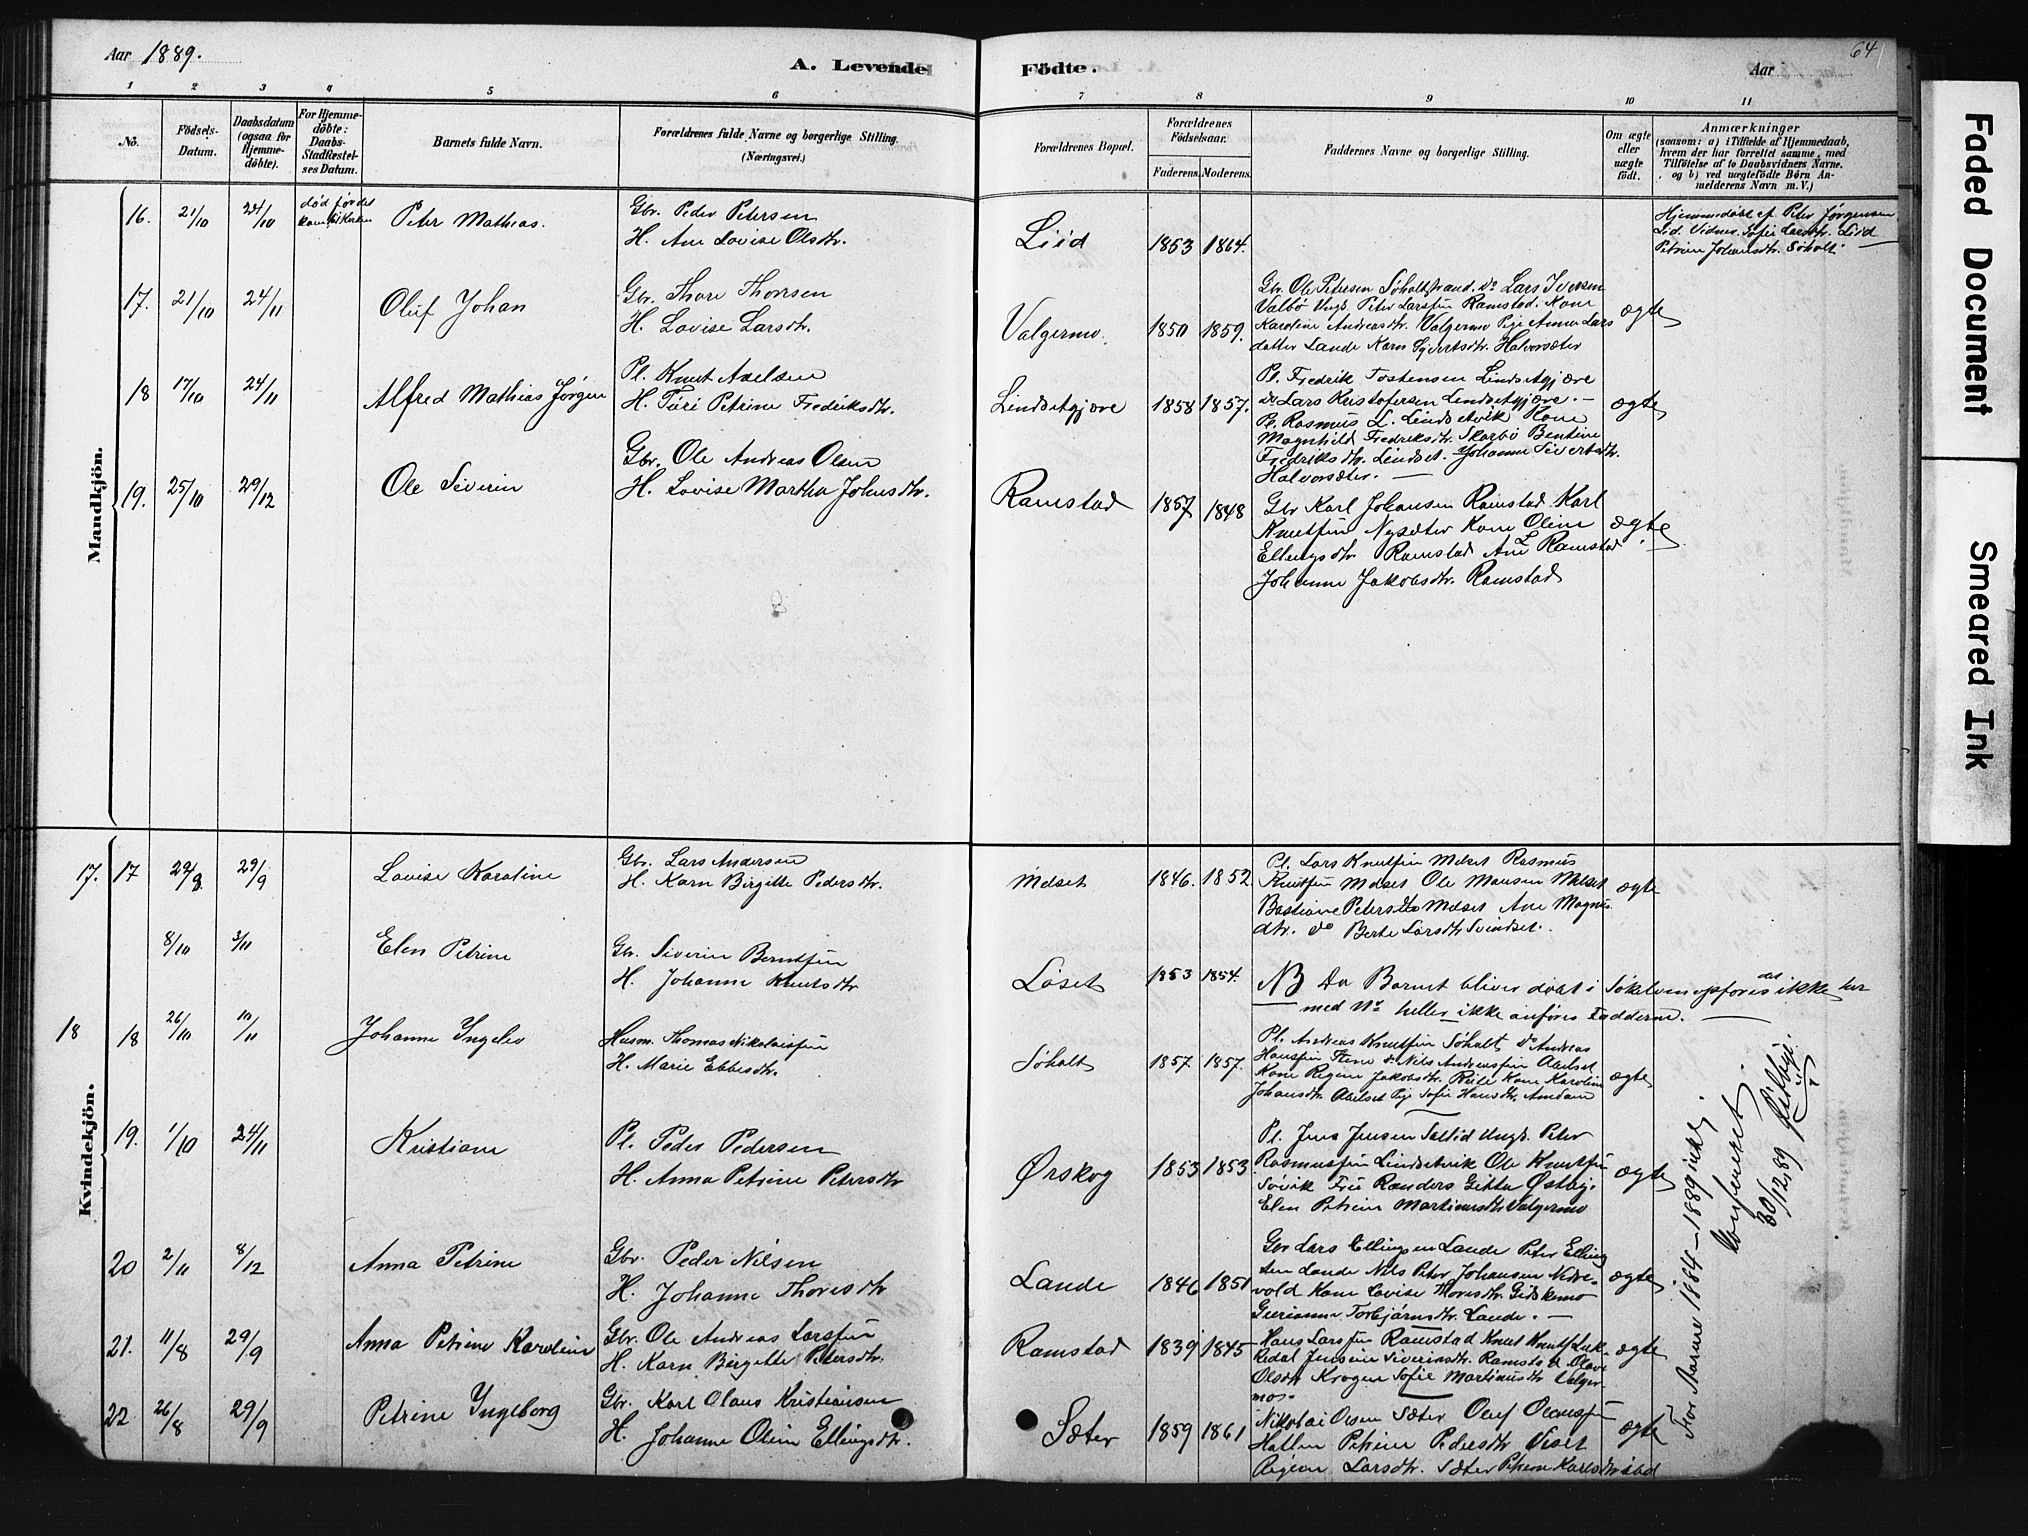 Aar 1889.
A. Levende
Födte.
Aar
64
1 2 3 4 5 6 7 8 9 10 11
No.
Födsels-Datum.
Daabsdatum (ogsaa for Hjemme-döbte).
For Hjemme-döbte: Daabs-Stadfæstel-ses Datum.
Barnets fulde Navn.
Forældrenes fulde Navne og borgerlige Stilling.
(Næringsvei.)
Forældrenes Bopæl.
Forældrenes Födselsaar.
Faderens. Moderens.
Faddernes Navne og borgerlige Stilling.
Om ægte eller uægte födt.
Anmærkninger
(saasom: a) i Tilfælde af Hjemmedaab,
hvem der har forrettet samme, med
Tilföielse af to Daabsvidners Navne.
og b) ved uægtefödte Börn An-
melderens Navn m. V.)
Mandkjön.
16. 21/10 24/10 død før det kom til Kirken
Peter Mathias.
Gbr. Peder Petersen
H. Ane Lovise Olsdtr.
Liid 1853 1864.
Hjemmedøbt af Peter Jørgensen
Lid. Vidner. Sofie Larsdtr. Liid
Petrine Johansdtr. Søholt
17. 21/10 24/11
Oluf Johan
Gbr. Thore Thoresen
H. Lovise Larsdtr.
Valgermo. 1850 1859.
Gbr. Ole Petersen Søholtstrand. do Lars Iversen
Valbø Ungk. Peter Larssen Ramstad. Kone
Karoline Andreasdtr. Valgermo Pige Anna Lars
datter Lande Karn Syvertsdtr. Halvorsæter
ægte
18 17/10 24/11
Alfred Mathias Jørgen
Pl. Knut Axelsen
H. Turi Petrine Fredriksdtr.
Lindsetgjære 1858 1857.
Pl. Fredrik Tostensen Lindsetgjære
do Lars Kristofersen Lindsetgjære. —
Pl. Rasmus L. Lindsetvik Kone
Magnhild Fredriksdtr. Skarbø Bentine
Fredriksdtr. Lindset. Johanne Sivertsdtr.
Halvorsæter. —
ægte
19. 25/10 29/12
Ole Severin
Gbr. Ole Andreas Olsen
H. Lovise Martha Johnsdtr.
Ramstad 1857 1848
Gbr Karl Johansen Ramstad Karl
Knutssen Nysæter Kone Oline
Ellingsdtr Ramstad Ane L Ramstad
Johanne Jakobsdtr. Ramstad
ægte
Kvindekjön.
17. 17 22/8 29/9
Lovise Karoline
Gbr. Lars Andersen
H. Karn Birgitte Pedersdtr.
Melset 1846. 1852
Pl. Lars Knutssen Melset Rasmus
Knutssen Melset Ole Monsen Melset
Bastiane Petersdtr Melset Ane Magnus
dtr. do Berte Larsdtr Svindset.
ægte
8/10 3/11
Elen Petrine
Gbr. Siverin Berntssen
H. Johanne Knutsdtr
Løset 1853 1854.
NB Da Barnet bliver døbt i Søkelven opføres det ikke her
med No heller ikke anføres Fadderne. —
18 18 26/10 10/11
Johanne Ingebo
Husm. Thomas Nikolaissen
H. Marie Ebbesdtr.
Søholt 1857 1857.
Pl. Andreas Knutssen Søholt do Andreas
Hanssen Stene do Nils Andreassen Abelset
Kone Regine Jakobsdtr. Reite Kone Karoline
Johansdtr Abelset Pige Sofie Hansdtr. Amdam
ægte
19. 1/10 24/11
Kristiane
Pl. Peder Pedersen
H. Anna Petrine Petersdtr
Ørskog 1853 1853
Pl. Jens Jensen Sætlid Ungk. Peter
Rasmussen Lindsetvik Ole Knutssen
Søvik Fru Randers Gitta Østbye
Elen Petrine Martinusdtr Valgermo
ægte
20 2/11 8/12
Anna Petrine
Gbr. Peder Nilsen
H. Johanne Thoresdtr
Lande 1846 1851
Gbr Lars Ellingsen Lande Peter Elling
sen Lande Nils Peter Johansen Nedre-
vold Kone Lovise Thoresdtr. Giskemo
Gurianna Torbjørnsdtr. Lande. —
ægte
21. 11/8 29/9
Anna Petrine Karoline
Gbr. Ole Andreas Larssen
H. Karn Birgitte Petersdtr.
Ramstad 1839 1845
Hans Larssen Ramstad Knut Knutss. Læk-
redal Jensine Siverinsdtr. Ramstad Olave
Olsdtr Krogen Sofie Martinusdtr Valger-
mo.
ægte
22 26/8 29/9
Petrine Ingeborg
Gbr. Karl Olaus Kristiansen
H. Johanne Oline Ellingsdtr.
Sæter 1859 1861
Nikolai Olsen Sæter Oluf
Hatlen Petrine Pedersdtr Viset
Larsdtr. Sæter Petrine Karlsdtr
ægte
For Aarene 1884–1889 inkl.
Confereret.
30/12 89
Faded Document
Smeared Ink